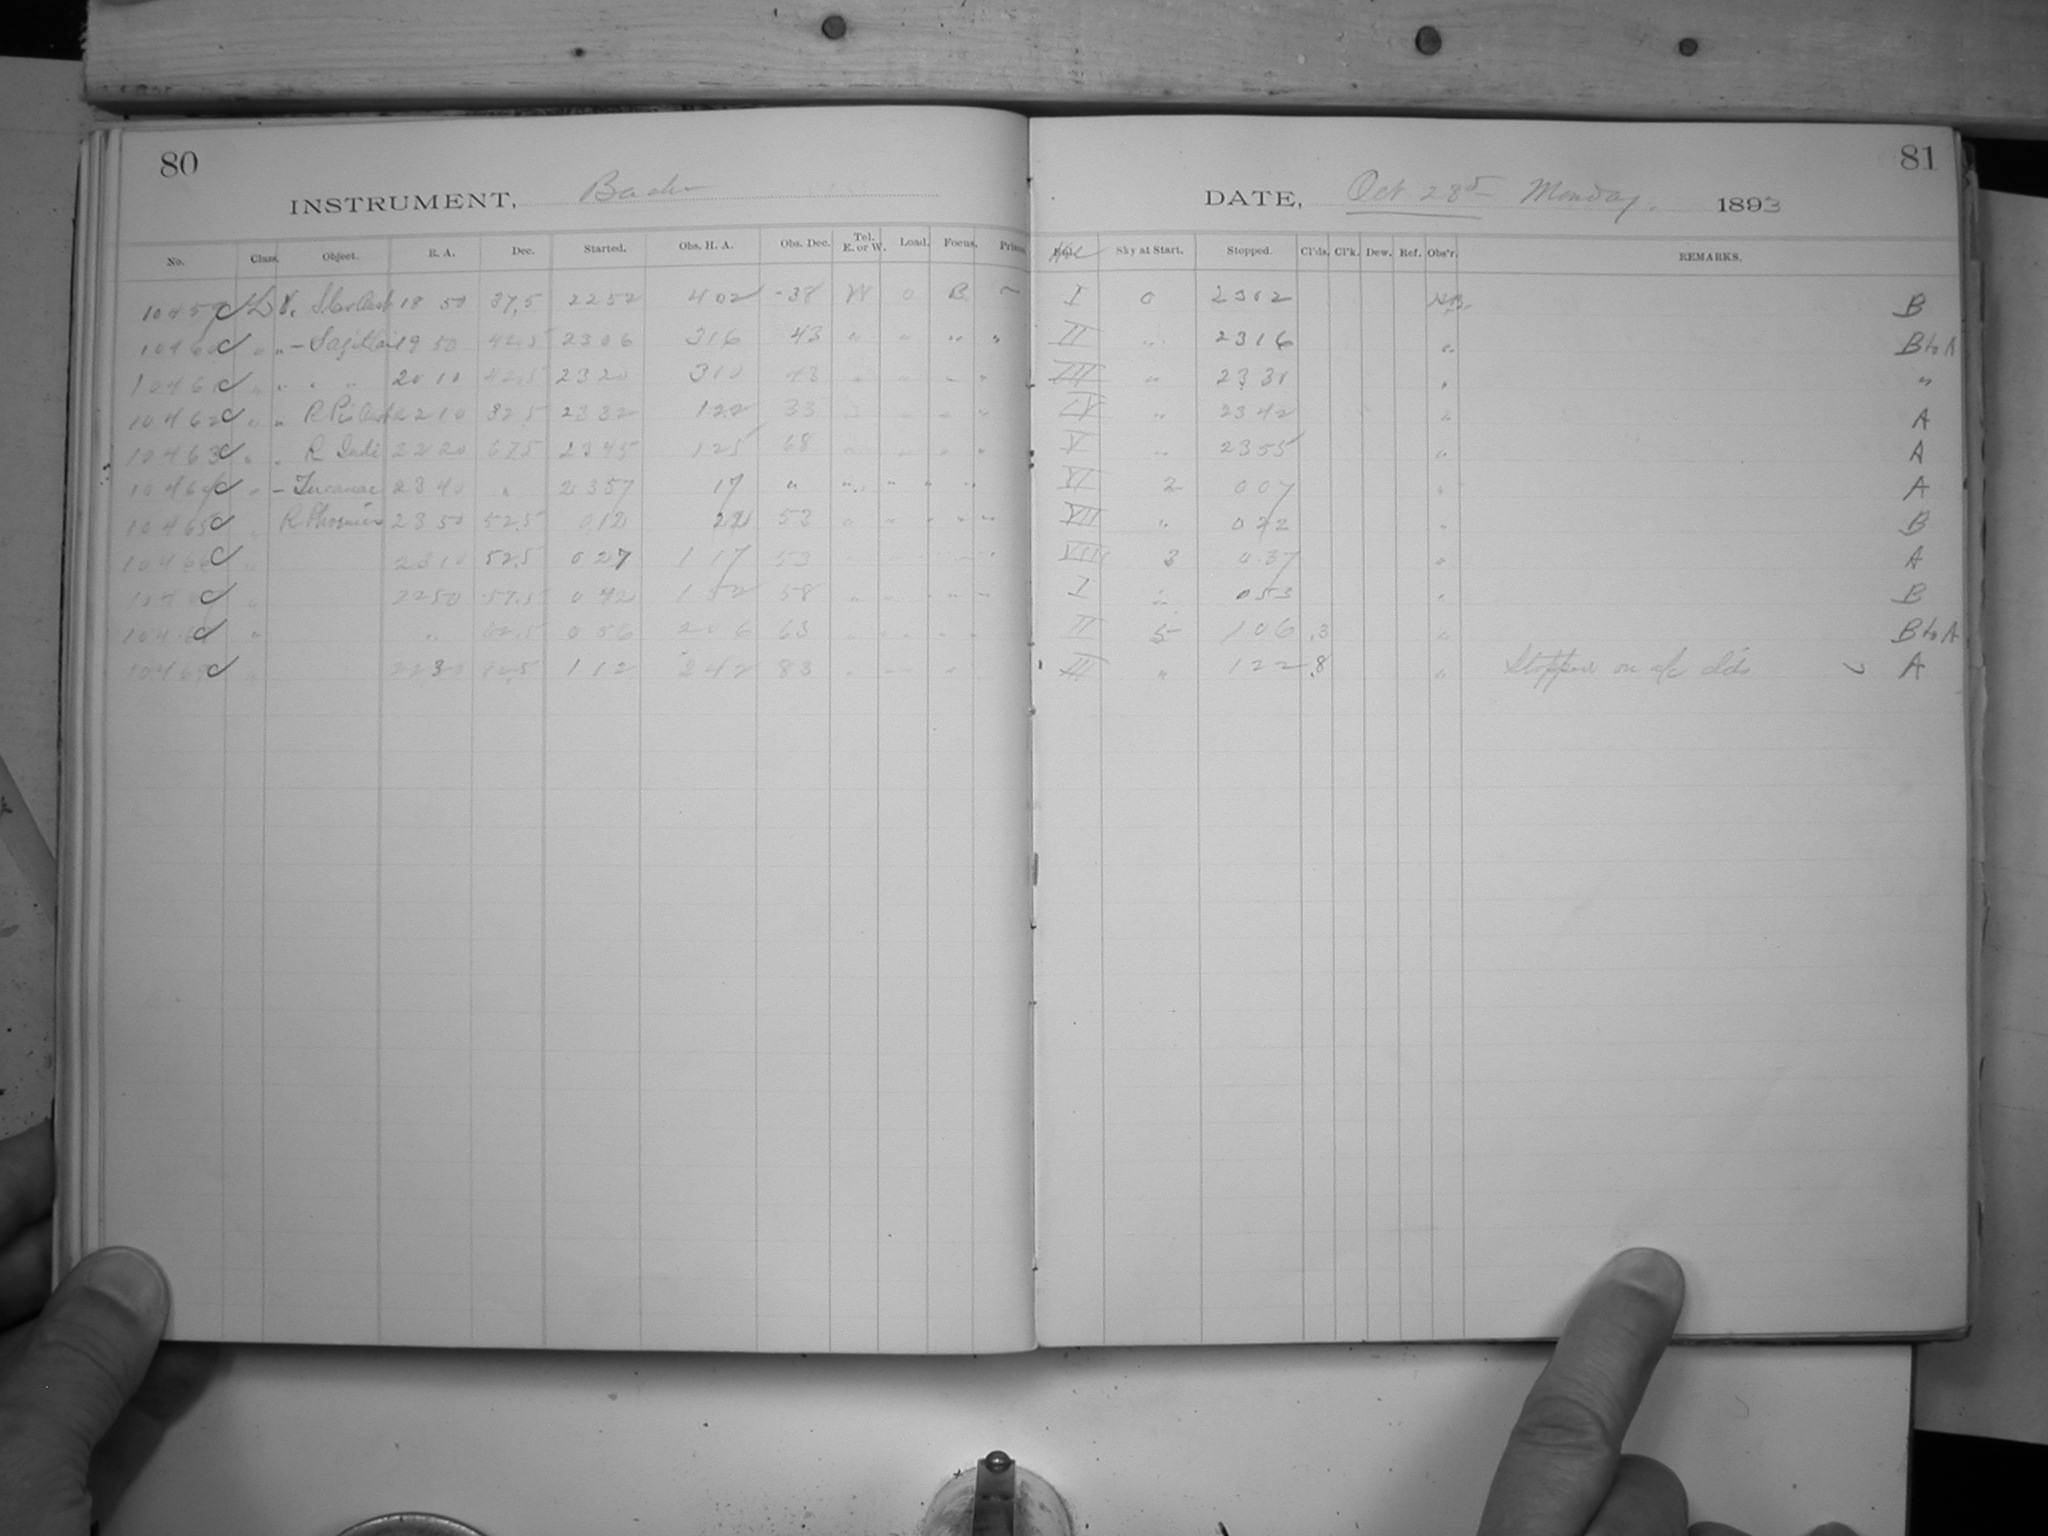 80
INSTRUMENT, Bache
No. Class. Object. R. A. Dec. Started. Obs. H. A. Obs. Dec. Tel. E. or W. Load. Focus. Prism
10459 18 50 37,5 2252 402 -38 W 0 B. ~
10460 " " - 19 50 42.5 2306 316 43 " " " "
10461 " " " " 20 10 42.5 2320 310 43 " " " "
10462 " " 22 10 32 5 2332 122 33 " " " "
10463 " " R Indi 22 20 67,5 2345 125 68 " " " "
10464 " - Tucanae 23 40 " 2357 17 " " " " "
10465 " R Phoenicis 23 50 52.5 012 22 53 " " " "
10466 " 2310 52.5 027 1 17 53 " " " "
" 2250 57.5 042 1 52 58 " " " "
" " 62.5 056 206 63 " " " "
10469 " 2230 82.5 112 242 83 " " "
81
DATE, Oct 23d Monday. 1893
Sky at Start. Stopped. Cl'ds. Cl'k. Dew. Ref. Obs'r. REMARKS.
I 0 2302 B
II " 2316 " B to A
III " 2330 " "
IV " 2342 " A
V " 2355 " A
VI 2 007 " A
VII " 022 " B
VIII 3 0.37 " A
I " 053 " B
II 5 106 .3 " B to A
III " 122 .8 " Stopped on a/c clds A